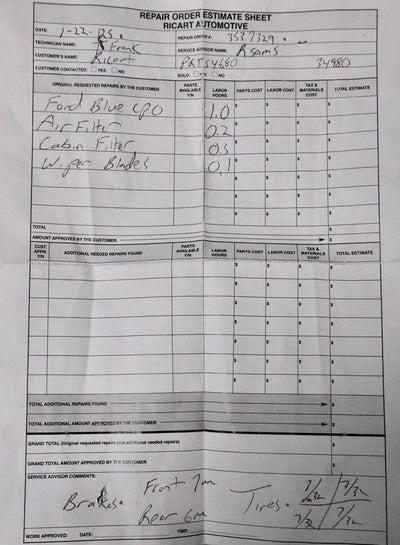 REPAIR ORDER ESTIMATE SHEET
RICART AUTOMOTIVE
DATE: 1-22-25 REPAIR ORDER #: 3537329
TECHNICIAN NAME: Frank SERVICE ADVISOR NAME: Asams
CUSTOMER'S NAME: Ricart 34980
CUSTOMER CONTACTED: YES NO SOLD: YES NO
ORIGINAL REQUESTED REPAIRS BY THE CUSTOMER PARTS AVAILABLE Y/N LABOR HOURS PARTS COST LABOR COST TAX & MATERIALS COST TOTAL ESTIMATE
Ford Blue CPO 1.0 $ $ $ $
Air Filter 0.2 $ $ $ $
Cabin Filter 0.3 $ $ $ $
Wiper Blades 0.1 $ $ $ $
TOTAL
AMOUNT APPROVED BY THE CUSTOMER $
CUST. APPR. Y/N ADDITIONAL NEEDED REPAIRS FOUND PARTS AVAILABLE Y/N LABOR HOURS PARTS COST LABOR COST TAX & MATERIALS COST TOTAL ESTIMATE
TOTAL ADDITIONAL REPAIRS FOUND $
TOTAL ADDITIONAL AMOUNT APPROVED BY THE CUSTOMER $
GRAND TOTAL (Original requested repairs plus additional needed repairs) $
GRAND TOTAL AMOUNT APPROVED BY THE CUSTOMER $
SERVICE ADVISOR COMMENTS:
Brakes. Front 7m Tires. 7/32 7/32
Rear 6m 7/32 7/32
WORK APPROVED: DATE: TIME: